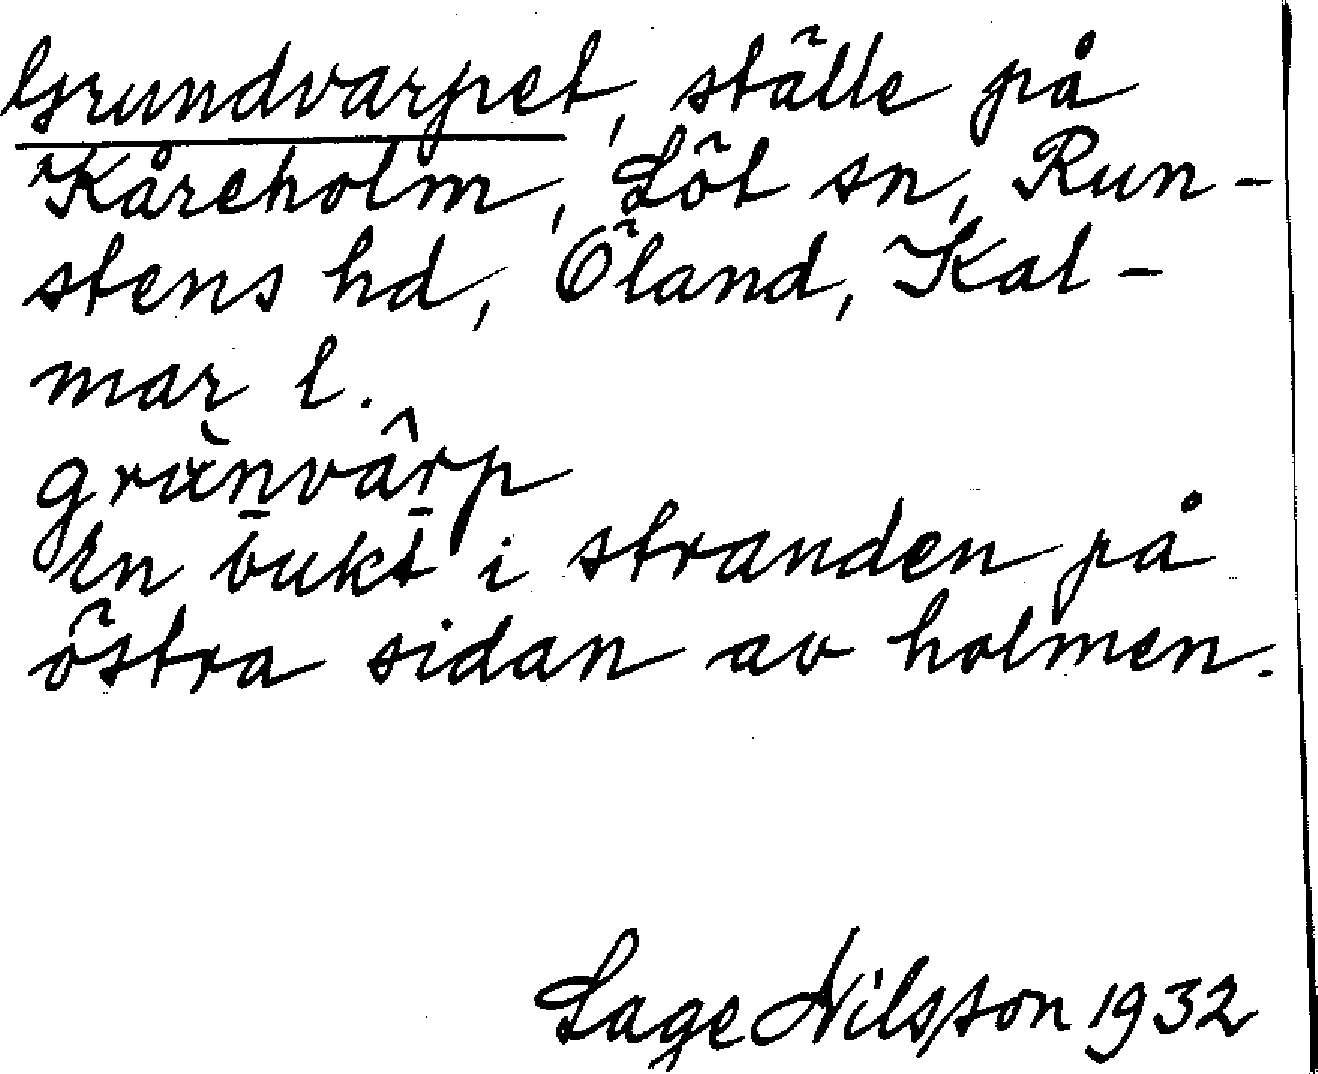 Grundvarpet, ställe på
Kåreholm, Löt sn, Run-
stens hd, Öland, Kal-
mar l.
grùnvâr̲p
En bukt i stranden på
östra sidan av holmen.
Sage Nilsson 1932